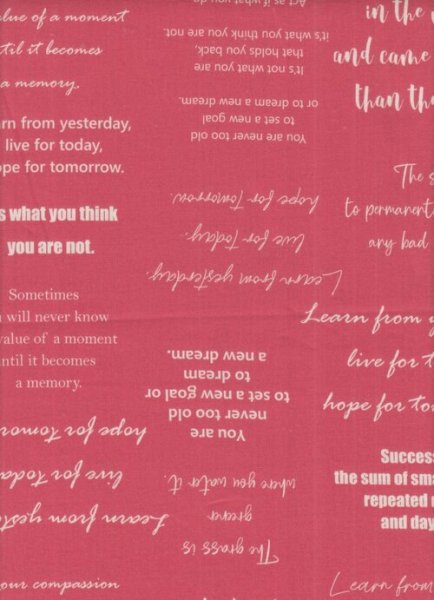 lue of a moment
til it becomes
a memory.
rn from yesterday,
live for today,
ope for tomorrow.
s what you think
you are not.
Sometimes
will never know
value of a moment
ntil it becomes
a memory.
Learn from yeste
live for toda
hope for tomorrow
our compassion
Act as if what you do
It's not what you are
that holds you back,
it's what you think you are not.
You are never too old
to set a new goal
or to dream a new dream.
Learn from yesterday.
live for today.
hope for tomorrow.
You are
never too old
to set a new goal or
to dream
a new dream.
The grass is
greener
where you water it.
in the
and came
than the
The s
to permanent
any bad
Learn from y
live for t
hope for to
Success
the sum of sma
repeated
and day
Learn from